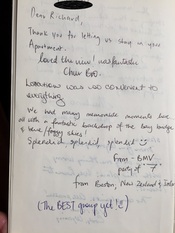 Dear Richard,
Thank you for letting us stay in your
Apartment.
loved the view! was fantastic
Chaur Boo.
Location was so convenient to
everything
We had many memorable moments here
all with a fantastic backdrop of the bay bridge
& blue/foggy skies!
Splendid splendid, splendid
From - BMV
party of "7"
from Boston, New Zealand &
(The BEST group yet!)